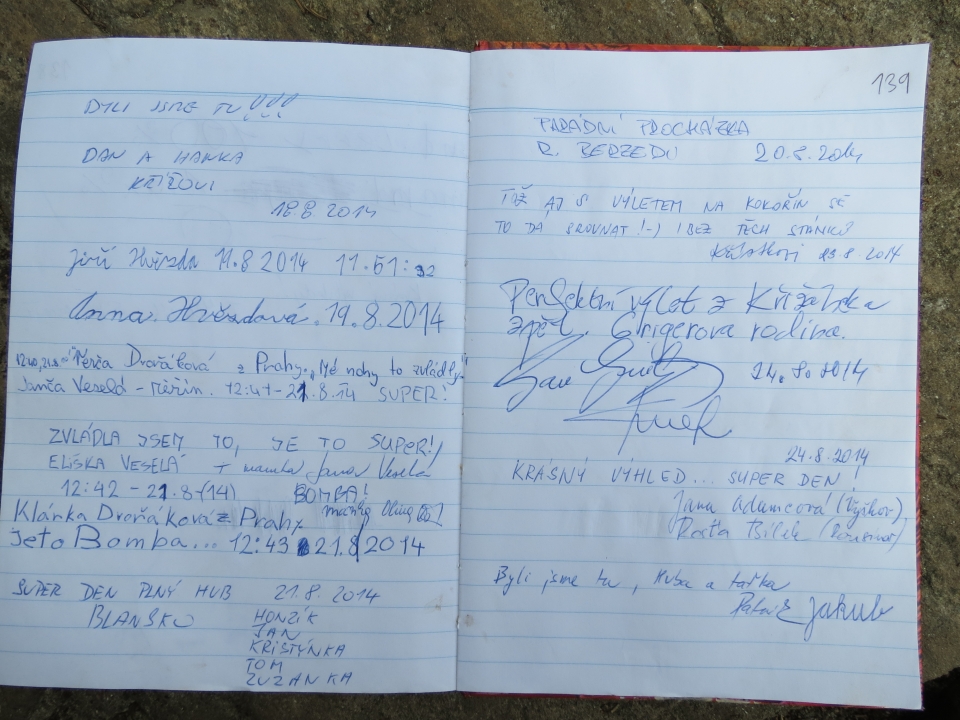 BYLI JSME TU!!!
DAN A HANKA
KŘÍŽOVI
18.8 2014
Jiří Hvězda 11.8 2014 11:51:
Anna Hvězdová. 19.8.2014
Dvořáková z Prahy „Mé nohy to zvládly“
Janča Veselá - 12:41-21.8.14 SUPER!
ZVLÁDLA JSEM TO, JE TO SUPER!
ELIŠKA VESELÁ + mamka Jana Veselá
12:42 - 21.8.(14) BOMBA!
Klárka Dvořáková z Prahy
Jeto Bomba... 12:43 21.8 2014
SUPER DEN PLNÝ HUB 21.8.2014
BLANSKO HONZÍK
JAN
KRISTÝNKA
TOM
ZUZANKA
139
PARÁDNÍ PROCHÁZKA
R. 20.8.2014
TOŽ AJ S VÝLETEM NA KOKOŘÍN SE
TO DÁ SROVNAT! :-) I BEZ TĚCH STÁNKŮ
8 2014
Perfektní výlet z Křižánka
zpět. Grigerova rodina.
24.8.2014
24.8.2014
KRÁSNÝ VÝHLED... SUPER DEN!
Jana Adamcová (Vyškov)
Rosťa Bílek
Byli jsme tu, Kuba a taťka
Jakub